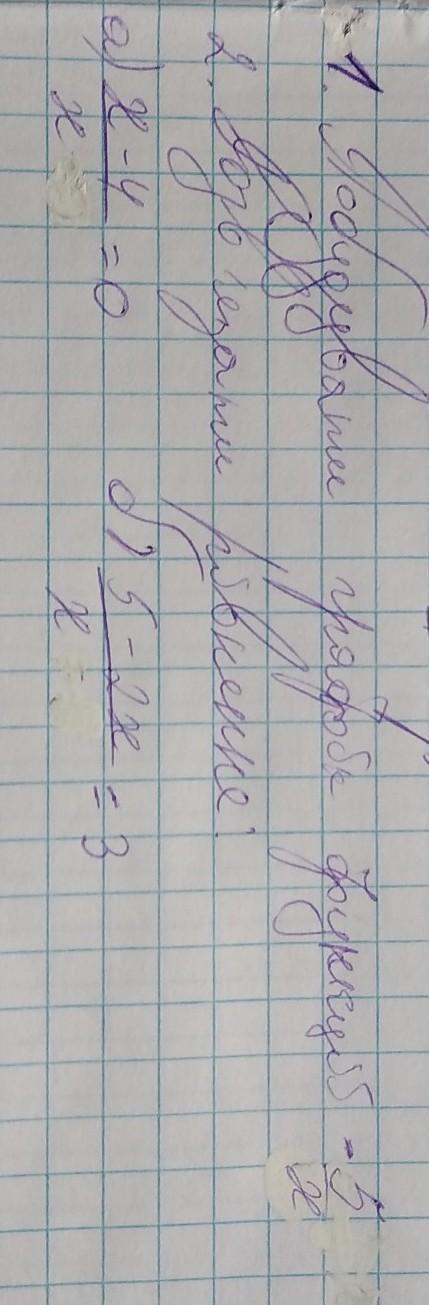 1. Побудувати графік функції - 5/x
2. Розв'язати рівняння:
а) x-4/x = 0 б) 5-2x/x = 3